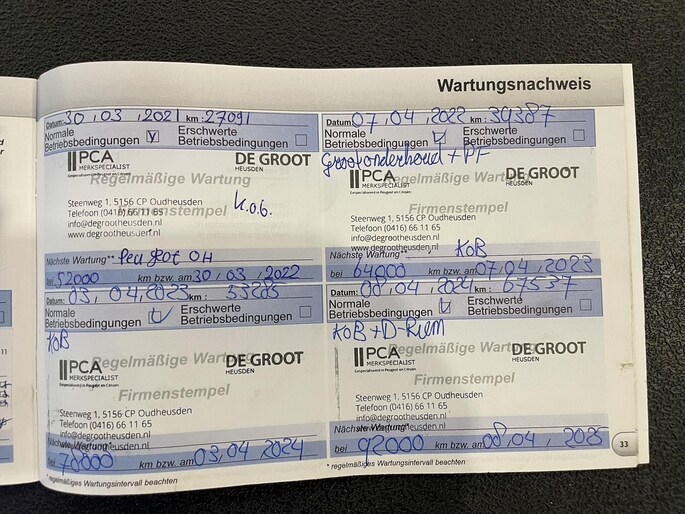 Wartungsnachweis
Datum: 30, 03, 2021 km: 27091
Normale
Betriebsbedingungen
Erschwerte
Betriebsbedingungen
PCA
MERKSPECIALIST
DE GROOT
HEUSDEN
Regelmäßige Wartung
Steenweg 1, 5156 CP Oudheusden
Telefoon (0416) 66 11 65
Firmenstempel
info@degrootheusden.nl
www.degrootheusden.nl
K.O.B.
Nächste Wartung**
OH
bei 52000 km bzw. am 30, 03, 2022
Datum: 07, 04, 2022 km: 39387
Normale
Betriebsbedingungen
Erschwerte
Betriebsbedingungen
Grootonderhoud + PF
PCA
MERKSPECIALIST
Gespecialiseerd in Peugeot en Citroën
DE GROOT
HEUSDEN
Regelmäßige Wartung
Steenweg 1, 5156 CP Oudheusden
Firmenstempel
Telefoon (0416) 66 11 65
info@degrootheusden.nl
www.degrootheusden.nl
Nächste Wartung** KOB
bei 64000 km bzw. am 07, 04, 2023
Datum: 03, 04, 2023 km: 53285
Normale
Betriebsbedingungen
Erschwerte
Betriebsbedingungen
KOB
PCA
MERKSPECIALIST
Gespecialiseerd in Peugeot en Citroën
DE GROOT
HEUSDEN
Regelmäßige Wartung
Firmenstempel
Steenweg 1, 5156 CP Oudheusden
Telefoon (0416) 66 11 65
info@degrootheusden.nl
Nächste Wartung**
www.degrootheusden.nl
bei 78000 km bzw. am 03, 04, 2024
* regelmäßiges Wartungsintervall beachten
Datum: 08, 04, 2024 km: 67537
Normale
Betriebsbedingungen
Erschwerte
Betriebsbedingungen
KOB + D-Riem
PCA
MERKSPECIALIST
Gespecialiseerd in Peugeot en Citroën
DE GROOT
HEUSDEN
Regelmäßige Wartung
Firmenstempel
Steenweg 1, 5156 CP Oudheusden
Telefoon (0416) 66 11 65
info@degrootheusden.nl
Nächste Wartung**
bei 92000 km bzw. am 08, 04, 2025
* regelmäßiges Wartungsintervall beachten
33